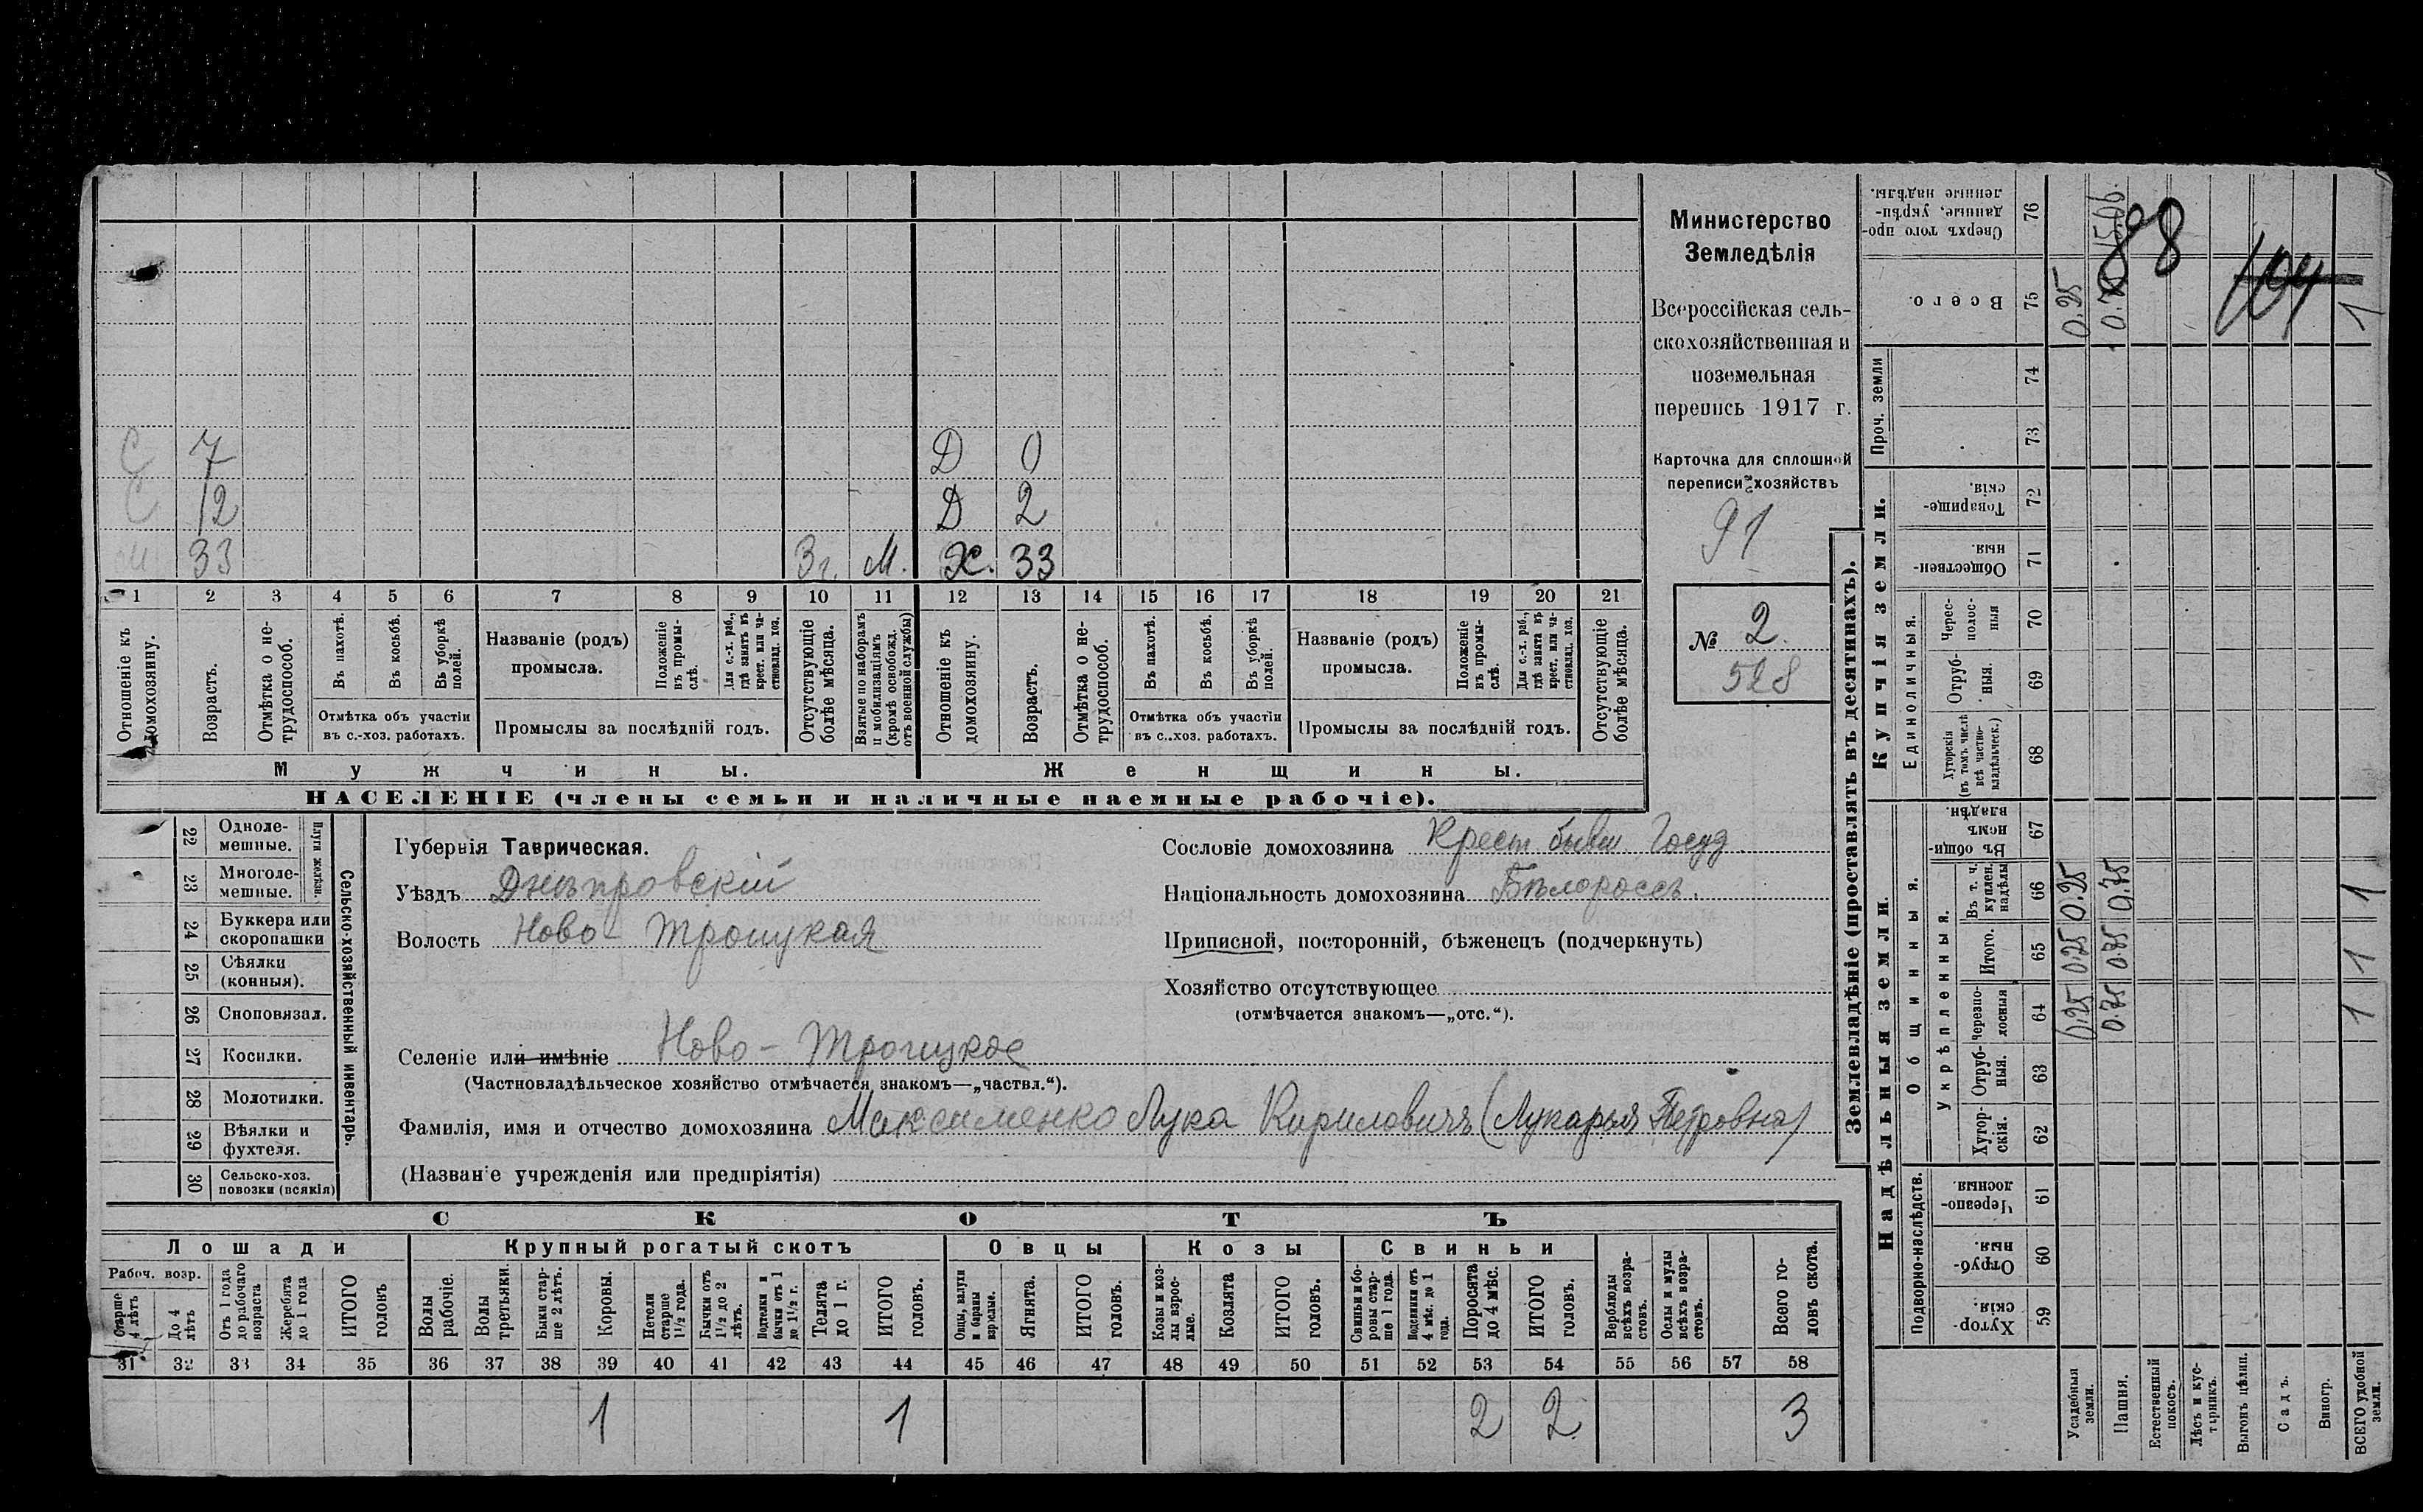 С 7 Д 0
С 12 Д 2
М 33 3 г. М. Ж. 33
1 2 3 4 5 6 7 8 9 10 11 12 13 14 15 16 17 18 19 20 21
Отношеніе къ домохозяину.
Возрастъ.
Отмѣтка о не-трудоспособ.
Въ пахотѣ.
Въ косьбѣ.
Въ уборкѣ полей.
Отмѣтка объ участіи
въ с.-хоз. работахъ.
Названіе (родъ)
промысла.
Положеніе въ промы-слѣ.
Для с.-х. раб., гдѣ занятъ въ крест. или ча-стновлад. хоз.
Промыслы за послѣдній годъ.
Отсутствующіе болѣе мѣсяца.
Взятые по наборамъ и мобилизаціямъ (кромѣ освобожд. отъ военной службы)
Отношеніе къ домохозяину.
Возрастъ.
Отмѣтка о не-трудоспособ.
Въ пахотѣ.
Въ косьбѣ.
Въ уборкѣ полей.
Отмѣтка объ участіи
въ с.-хоз. работахъ.
Названіе (родъ)
промысла.
Положеніе въ промы-слѣ.
Для с.-х. раб., гдѣ занята въ крест. или ча-стновлад. хоз.
Промыслы за послѣдній годъ.
Отсутствующіе болѣе мѣсяца.
Мужчины. Женщины.
НАСЕЛЕНІЕ (члены семьи и наличные наемные рабочіе).
Министерство
Земледѣлія
Всероссійская сель-
скохозяйственная и
поземельная
перепись 1917 г.
Карточка для сплошной
переписи хозяйствъ
91
№ 2.
528
22 Одноле-мешные.
23 Многоле-мешные.
Плуги желѣзн.
24 Буккера или скоропашки
25 Сѣялки (конныя).
26 Сноповязал.
27 Косилки.
28 Молотилки.
29 Вѣялки и фухтеля.
30 Сельско-хоз. повозки (всякія)
Сельско-хозяйственный инвентарь.
Губернія Таврическая.
Уѣздъ Днѣпровскій
Волость Ново-Троицкая
Селеніе или имѣніе Ново-Троицкое
(Частновладѣльческое хозяйство отмѣчается знакомъ—„частвл.“).
Сословіе домохозяина Крест. бывш. Госуд
Національность домохозяина Бѣлороссъ.
Приписной, посторонній, бѣженецъ (подчеркнуть)
Хозяйство отсутствующее
(отмѣчается знакомъ—„отс.“).
Фамилія, имя и отчество домохозяина Максименко Лука Кириловичъ (Лукарья Петровна)
(Названіе учрежденія или предпріятія)
СКОТЪ
Лошади
Крупный рогатый скотъ
Овцы
Козы
Свиньи
Рабоч. возр.
Старше 4 лѣтъ
До 4 лѣтъ
Отъ 1 года до рабочаго возраста
Жеребята до 1 года
ИТОГО головъ
Волы рабочіе.
Волы третьяки.
Быки стар-ше 2 лѣтъ.
Коровы.
Нетели старше 1½ года.
Бычки отъ 1½ до 2 лѣтъ.
Подтелки и бычки отъ 1 до 1½ г.
Телята до 1 г.
ИТОГО головъ.
Овцы, валухи и бараны взрослые.
Ягнята.
ИТОГО головъ.
Козы и коз-лы взрос-лые.
Козлята
ИТОГО головъ.
Свиньи и бо-ровы стар-ше 1 года.
Подсвинки отъ 4 мѣс. до 1 года.
Поросята до 4 мѣс.
ИТОГО головъ.
Верблюды всѣхъ возра-стовъ.
Ослы и мулы всѣхъ возра-стовъ.
Всего го-ловъ скота.
31 32 33 34 35 36 37 38 39 40 41 42 43 44 45 46 47 48 49 50 51 52 53 54 55 56 57 58
1 1 2 2 3
Землевладѣніе (проставлять въ десятинахъ).
Надѣльныя земли.
Купчія земли.
Проч. земли
Подворно-наслѣдств.
Общинныя.
Укрѣпленныя.
Единоличныя.
Хутор-скія. 59
Отруб-ныя. 60
Черезпо-лосныя. 61
Хутор-скія. 62
Отруб-ныя. 63
Черезпо-лосныя 64
Итого. 65
Въ т. ч. куплен. надѣлы 66
Въ общи-нномъ владѣн. 67
Хуторскія (въ томъ числѣ всѣ частно-владѣльческ.) 68
Отруб-ныя. 69
Черес-полос-ныя 70
Обществен-ныя. 71
Товарище-скія. 72
73
74
Всего. 75
Сверхъ того про-данные, укрѣп-ленные надѣлы. 76
Усадебныя земли. 0.25 0.25 0.25 0.25
Пашня. 0.75 0.75 0.75
Естественный покосъ.
Лѣсъ и кус-тарникъ.
Выгонъ цѣлин.
Садъ.
Виногр.
ВСЕГО удобной земли. 1 1 1 1
88
104